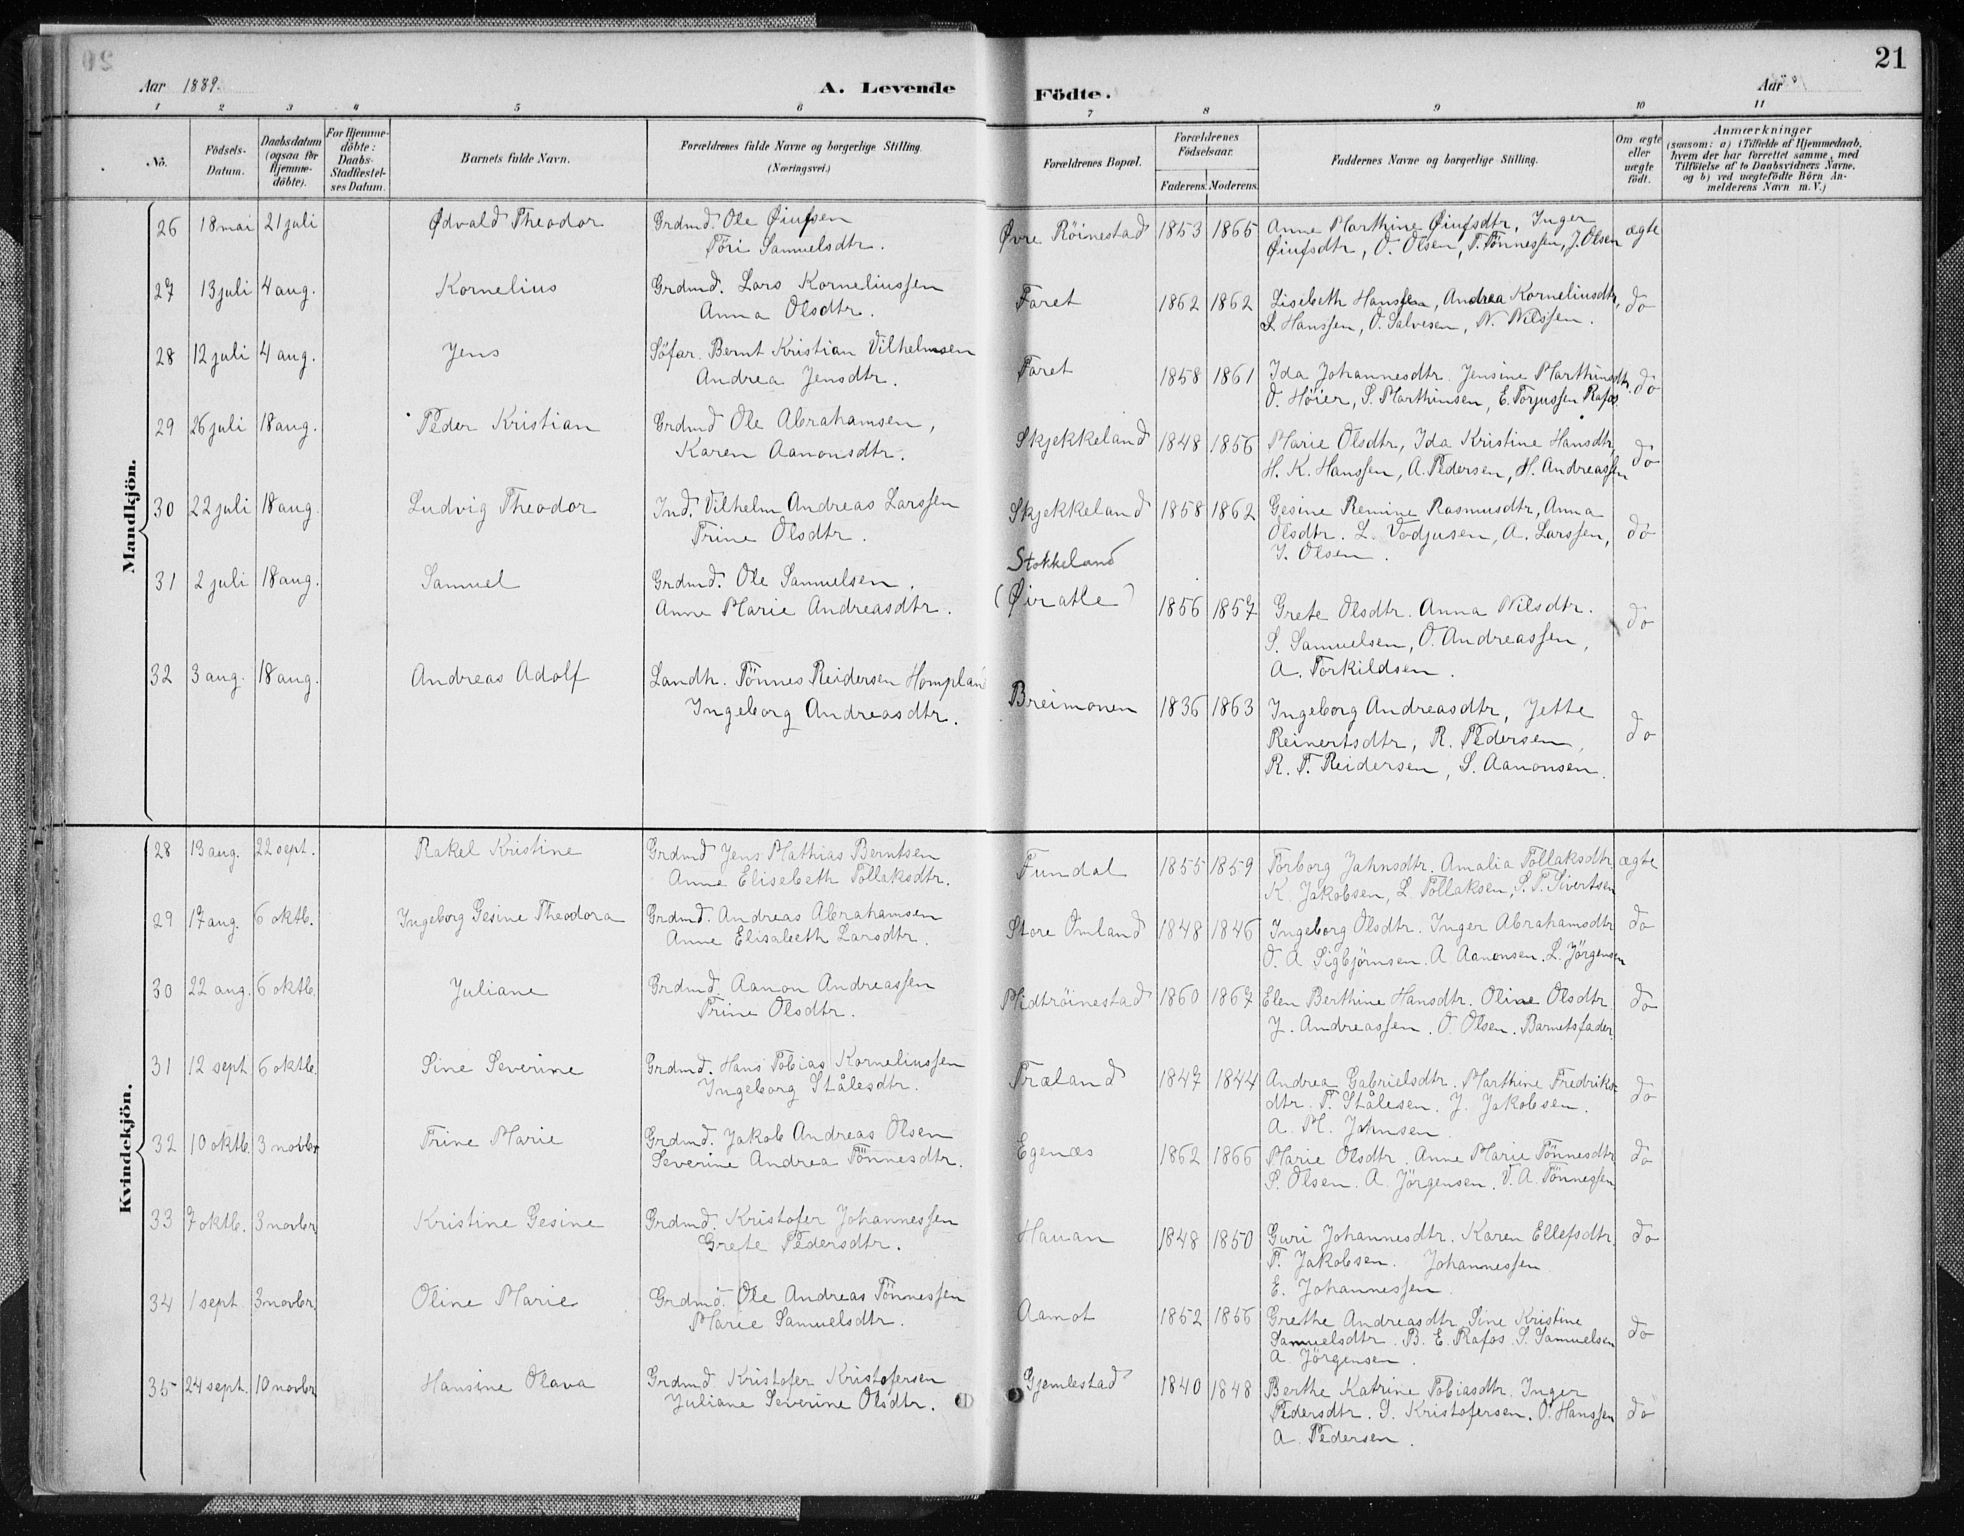 21
Aar 1889. A. Levende Födte. Aar
1 2 3 4 5 6 7 8 9 10 11
No.
Födsels-Datum.
Daabsdatum (ogsaa for Hjemme-döbte).
For Hjemme-döbte: Daabs-Stadfæstel-ses Datum.
Barnets fulde Navn.
Forældrenes fulde Navne og borgerlige Stilling (Næringsvei.)
Forældrenes Bopæl.
Forældrenes Födselsaar.
Faderens. Moderens.
Faddernes Navne og borgerlige Stilling.
Om ægte eller uægte födt.
Anmærkninger
(saasom: a) i Tilfælde af Hjemmedaab, hvem der har forrettet samme, med Tilföielse af to Daabsvidners Navne, og b) ved uægtefödte Börn An-melderens Navn m.V.)
Mandkjön.
26 18 mai 21 juli Ødvald Theodor Grdmd. Ole Øiufsen Øvre Röinestad 1853 1865 Anne Marthine Øiufsdtr, Inger ægte
Töri Samuelsdtr. Øiufsdtr, O. Olsen, T. Tönnessen, J. Olsen
27 13 juli 4 aug. Kornelius Grdmd. Lars Korneliussen Faret 1862 1862 Lisebeth Hanssen, Andrea Korneliusdtr, do
Anna Olsdtr. L Hanssen, O. Salvesen, N. Nilssen.
28 12 juli 4 aug. Jens Söfar. Bernt Kristian Vilhelmsen Faret 1858 1861 Ida Johannesdtr. Jensine Marthinsdtr. do
Andrea Jensdtr. O. Höier, S. Marthinsen, E. Torjussen Rafos
29 26 juli 18 aug. Peder Kristian Grdmd Ole Abrahamsen, Skjekkeland 1848 1856 Marie Olsdtr, Ida Kristine Hansdtr do
Karen Aanonsdtr. H. K. Hanssen, A. Pedersen, H. Andreassen
30 22 juli 18 aug. Ludvig Theodor Ind. Vilhelm Andreas Larssen Skjekkeland 1858 1862 Gesine Remine Rasmusdtr, Anna do
Trine Olsdtr. Olsdtr. L. Vodjusen, A. Larssen,
J. Olsen.
31 2 juli 18 aug. Samuel Grdmd. Ole Samuelsen. Stokkeland
Anne Marie Andreasdtr. (Øiratle) 1856 1857 Grete Olsdtr. Anna Nilsdtr. do
S. Samuelsen, O. Andreassen,
A. Torkildsen.
32 3 aug. 18 aug. Andreas Adolf Landh. Tönnes Reidersen Hompland Breimonen 1836 1863 Ingeborg Andreasdtr, Jette do
Ingeborg Andreasdtr. Reinertsdtr, R. Pedersen,
R. T. Reidersen, S. Aanonsen.
Kvindekjön.
28 13 aug. 22 sept. Rakel Kristine Grdmd Jens Mathias Berntsen Fundal 1855 1859 Torborg Jahnsdtr. Amalia Tollaksdtr ægte
Anne Elisebeth Tollaksdtr. K. Jakobsen, L Tollaksen, S. T. Sivertsen
29 17 aug. 6 oktb. Ingeborg Gesine Theodora Grdmd. Andreas Abrahamsen Store Omland 1848 1846 Ingeborg Olsdtr. Inger Abrahamsdtr do
Anne Elisabeth Larsdtr. O. A Sigbjörnsen. A Aanonsen. L. Jörgensen
30 22 aug. 6 oktb. Juliane Grdmd. Aanon Andreassen Midtröinestad 1860 1867 Elen Berthine Hansdtr. Oline Olsdtr do
Trine Olsdtr. J. Andreassen. O. Olsen. Barnetsfader
31 12 sept 6 oktb. Sine Severine Grdmd. Hans Tobias Korneliussen Træland 1847 1844 Andrea Gabrielsdtr. Marthine Fredriks- do
Ingeborg Stålesdtr. dtr. T. Stålesen. J. Jakobsen.
A. M. Jahnsen
32 10 oktb. 3 novbr Trine Marie Grdmd. Jakob Andreas Olsen Egenæs 1862 1866 Marie Olsdtr. Anne Marie Tönnesdtr do
Severine Andrea Tönnesdtr. S. Olsen. A. Jörgensen. V. A. Tönnessen
33 7 oktb. 3 novbr Kristine Gesine Grdmd. Kristofer Johannessen Hauan 1848 1850 Guri Johannesdtr. Karen Ellefsdtr. do
Grete Pedersdtr. T. Jakobsen. Johannessen
E. Johannessen
34 1 sept 3 novbr Oline Marie Grdmd. Ole Andreas Tönnessen Aamot 1852 1856 Grethe Andreasdtr Sine Kristine do
Marie Samuelsdtr. Samuelsdtr. B. E. Rafos. S. Samuelsen
A. Jörgensen.
35 24 sept. 10 novbr Hansine Olava Grdmd Kristofer Kristofersen Gjemlestad 1840 1848 Berthe Katrine Tobiasdtr. Inger do
Juliane Severine Olsdtr. Pedersdtr. S. Kristofersen. O. Hanssen
A. Pedersen.